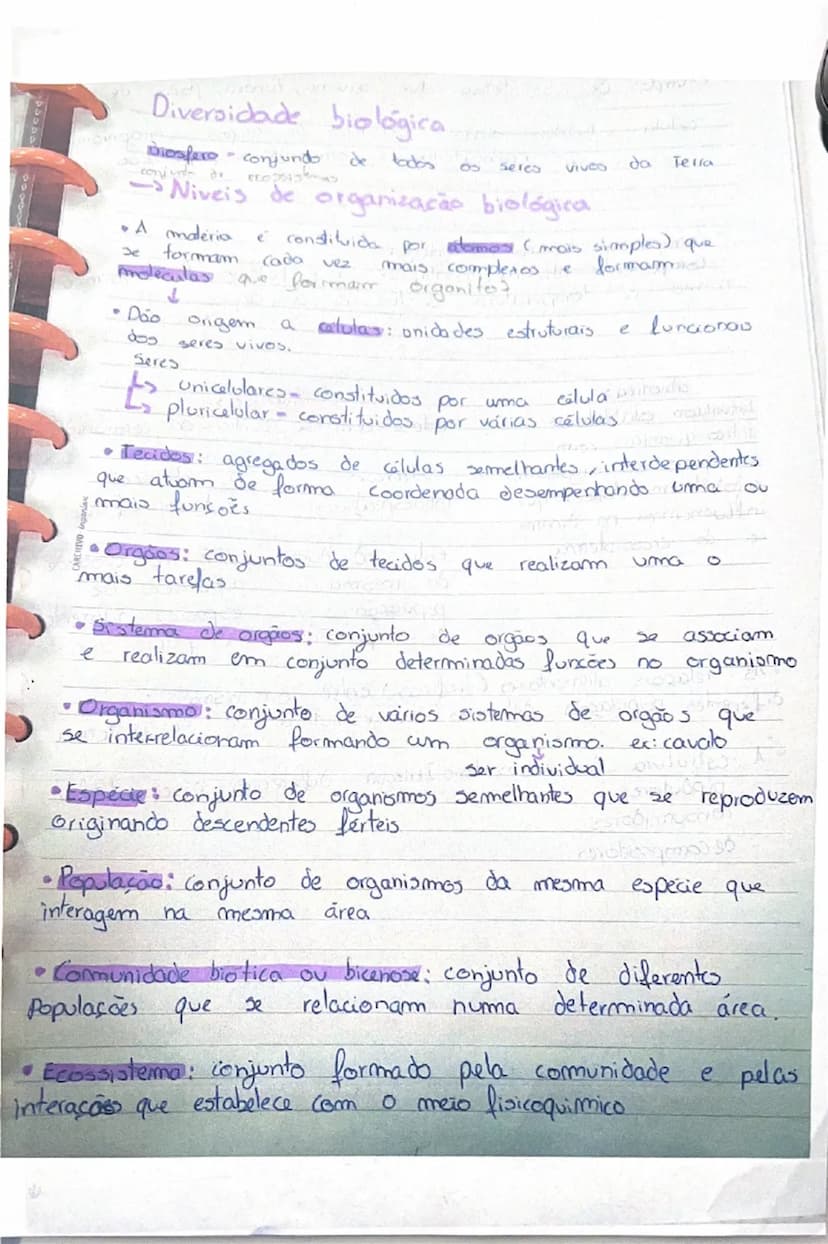 Diversidade biológica
Biosfera - conjundo de todos os seres vivos da Terra
conjunto de ecossistemas
→ Niveis de organização biológica
• A matéria é constituida por atomos (mais simples) que
se formam cada vez mais complexos e formam
moleculas que formam organitos
↓
• Dão origem a células: unidades estruturais e funcionais
dos seres vivos.
Seres
↳ unicelulares - constituidos por uma célula
↳ pluricelular - constituidos por várias células
• Tecidos: agregados de células semelhantes, interdependentes
que atuam de forma coordenada desempenhando uma ou
mais funções
• Orgãos: conjuntos de tecidos que realizam uma o
mais tarefas
• Sistema de orgãos: conjunto de orgãos que se associam
e realizam em conjunto determinadas funções no organismo
• Organismo: conjunto de vários sistemas de orgãos que
se interrelacionam formando um organismo. ex: cavalo
↓
ser individual
• Espécie: conjunto de organismos semelhantes que se reproduzem
originando descendentes férteis
• População: conjunto de organismos da mesma espécie que
interagem na mesma área
• Comunidade biotica ou bicenose: conjunto de diferentes
Populações que se relacionam numa determinada área.
• Ecossistema: conjunto formado pela comunidade e pelas
interações que estabelece com o meio fisicoquimico